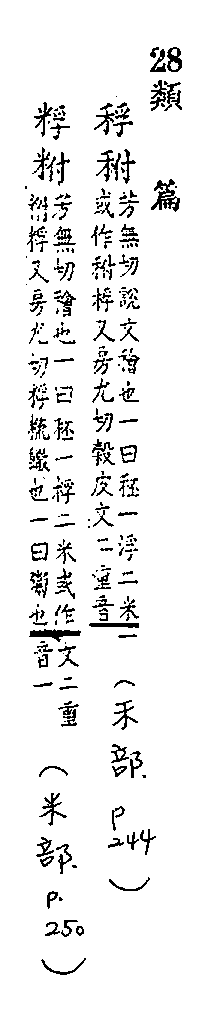 28類篇
稃䄮
芳無切說文𥢶也一曰秠一浮二米
或作䄮桴又房尤切榖皮文二重音一
(禾部. P244)
粰
芳無切𥢶也一曰秠一桴二米或作
粰又房尤切粰也一曰粥也
文二重
音一
(米部. p.250)